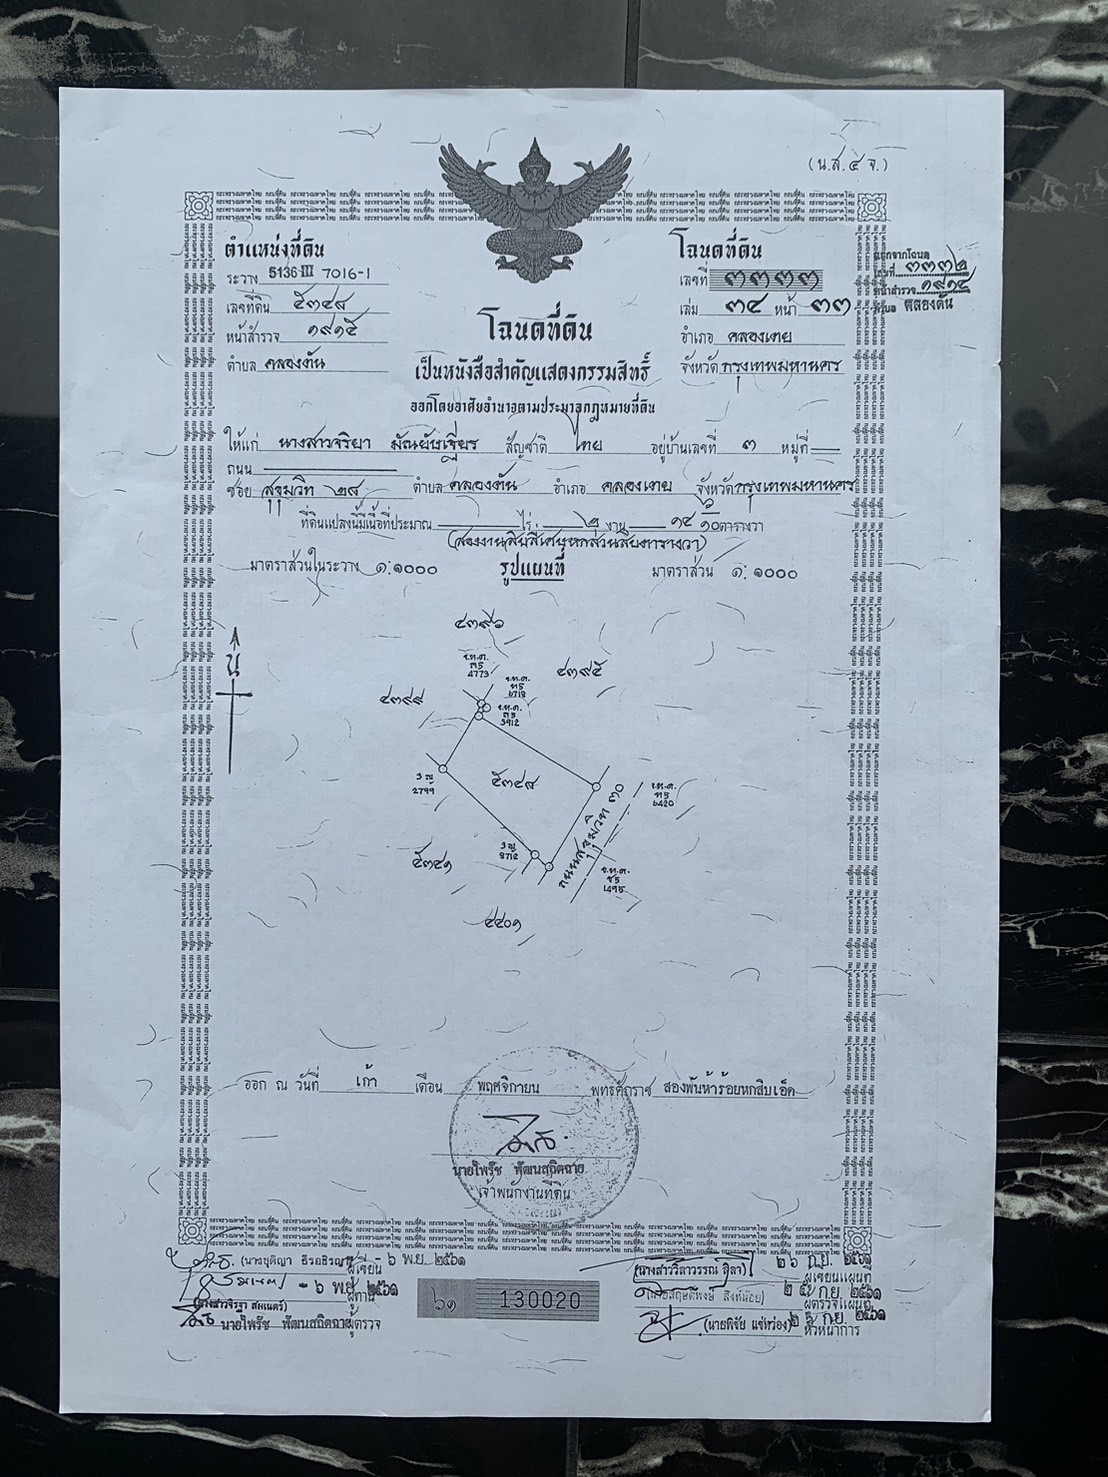 (น.ส.๔ จ.)
ตำแหน่งที่ดิน
ระวาง 5136 III 7016-1
เลขที่ดิน ๕๓๔๘
หน้าสำรวจ ๑๙๑๕
ตำบล คลองตัน
โฉนดที่ดิน
เลขที่ ๓๓๓๓
เล่ม ๓๔ หน้า ๓๓
อำเภอ คลองเตย
จังหวัด กรุงเทพมหานคร
แยกจากโฉนด
เลขที่ ๓๓๓๒
หน้าสำรวจ ๑๙๑๔
ตำบล คลองตัน
โฉนดที่ดิน
เป็นหนังสือสำคัญแสดงกรรมสิทธิ์
ออกโดยอาศัยอำนาจตามประมวลกฎหมายที่ดิน
ให้แก่ นางสาวจริยา สัญชาติ ไทย อยู่บ้านเลขที่ ๓ หมู่ที่ —
ถนน —
ซอย สุขุมวิท ๒๘ ตำบล คลองตัน อำเภอ คลองเตย จังหวัด กรุงเทพมหานคร
ที่ดินแปลงนี้มีเนื้อที่ประมาณ — ไร่ ๒ งาน ๑๔ ๖/๑๐ ตารางวา
(สองงานสิบสี่เศษหกส่วนสิบตารางวา)
มาตราส่วนในระวาง ๑:๑๐๐๐ รูปแผนที่ มาตราส่วน ๑:๑๐๐๐
น
๔๓๙๖
๔๓๙๕
๔๓๙๙
ร.ท.ด.
ล5
4773
ร.ท.ด.
ท5
6718
ร.ท.ด.
ล5
3912
๕๓๔๘
2799
ถนนสุขุมวิท ๓๐
ร.ท.ด.
ท5
6420
๕๓๔๑
8712
ร.ท.ด.
ช5
1495
๔๔๐๑
ออก ณ วันที่ เก้า เดือน พฤศจิกายน พุทธศักราช สองพันห้าร้อยหกสิบเอ็ด
นายไพรัช พัฒนสถิตฉาย
เจ้าพนักงานที่ดิน
(นางยุติญา ธีรอธิรญา) ผู้เขียน ๖ พ.ย. ๒๕๖๑
ผู้ทาน - ๖ พ.ย. ๒๕๖๑
นายไพรัช พัฒนสถิตฉาย ผู้ตรวจ
๖๑ 130020
(นางสาววิลาวรรณ ลิลา) ผู้เขียนแผนที่ ๒๖ ก.ย. ๒๕๖๑
ผู้ตรวจแผนที่ ก.ย. ๒๕๖๑
(นายพิชัย แซ่หว่อง) หัวหน้าการ ก.ย. ๒๕๖๑